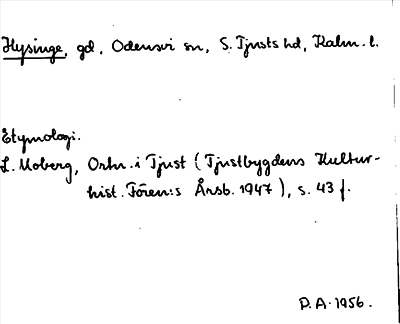 Hysinge, gd, Odensvi sn, S. Tjusts hd, Kalm. l.
Etymologi.
L. Moberg, Ortn. i Tjust (Tjustbygdens Kultur-
hist. Fören:s Årsb. 1947), s. 43 f.
P.A. 1956.